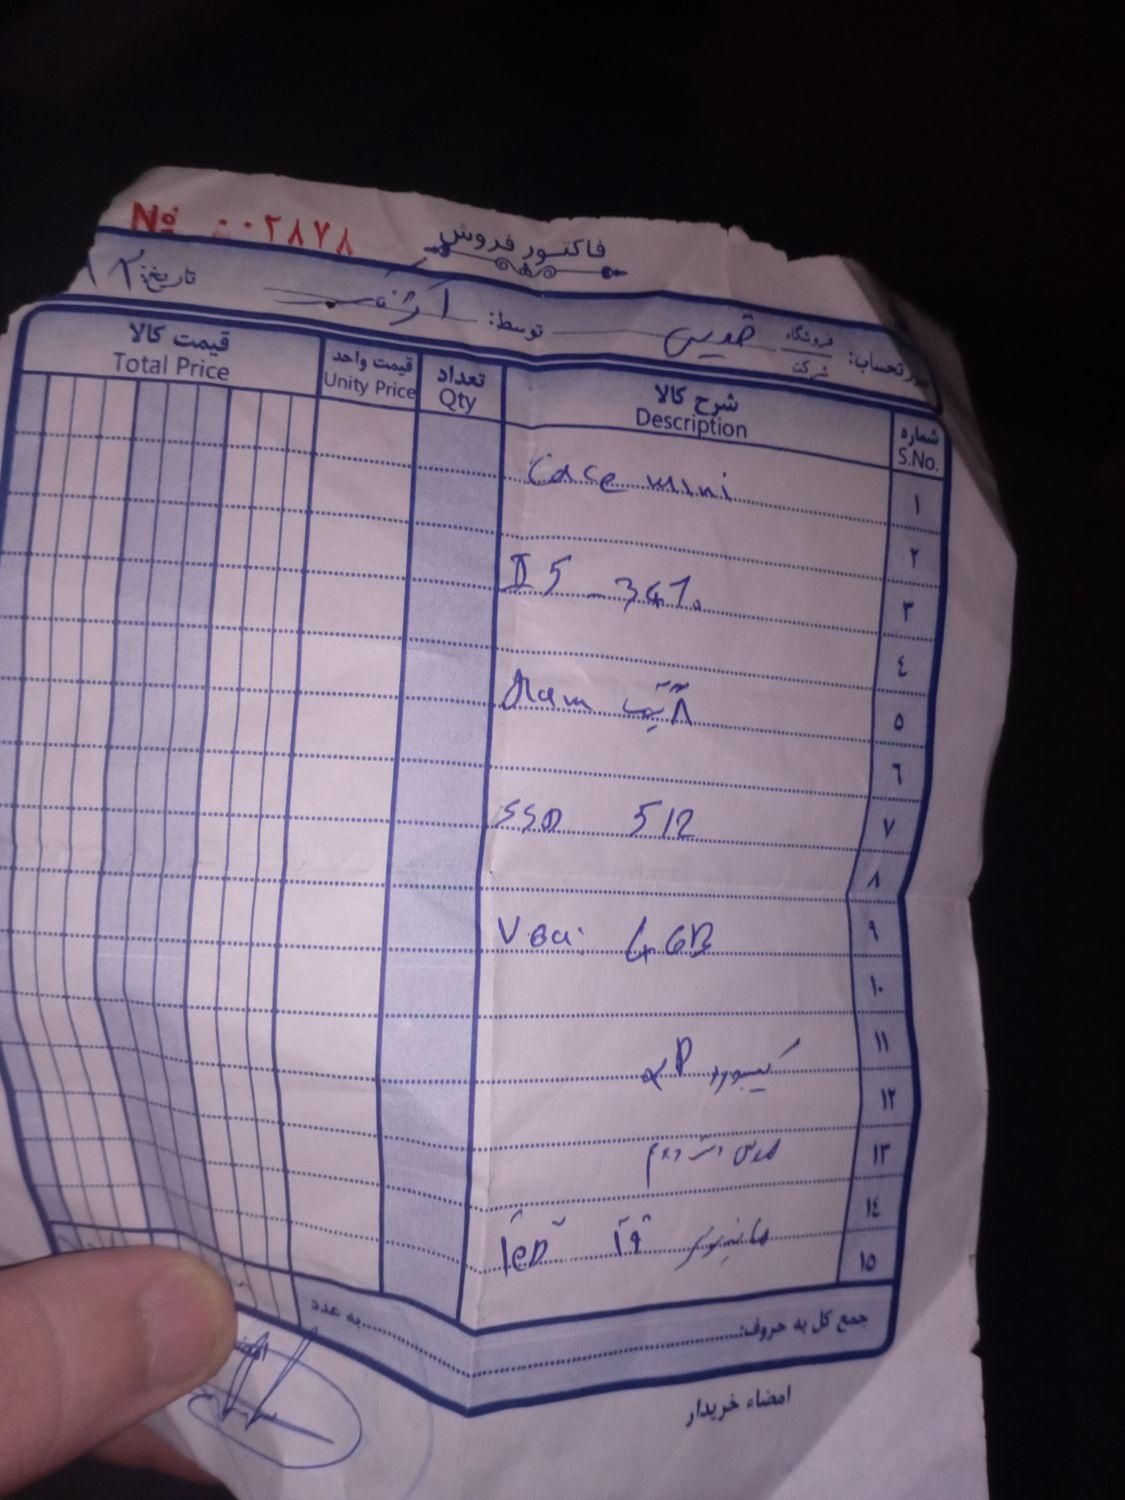 № ۰۰۲۸۷۸
فاکتور فروش
صورتحساب: فروشگاه شرکت توسط: تاریخ:
شماره S.No. شرح کالا Description تعداد Qty قیمت واحد Unity Price قیمت کالا Total Price
۱ Case mini
۲
۳ I5 - 3470
٤
۵ Ram ۸
٦
۷ SSD 512
۸
۹ 4GB
۱۰
۱۱ کیبورد
۱۲
۱۳
۱٤
۱۵ مانیتور ۱۹ leD
جمع کل به حروف: به عدد
امضاء خریدار